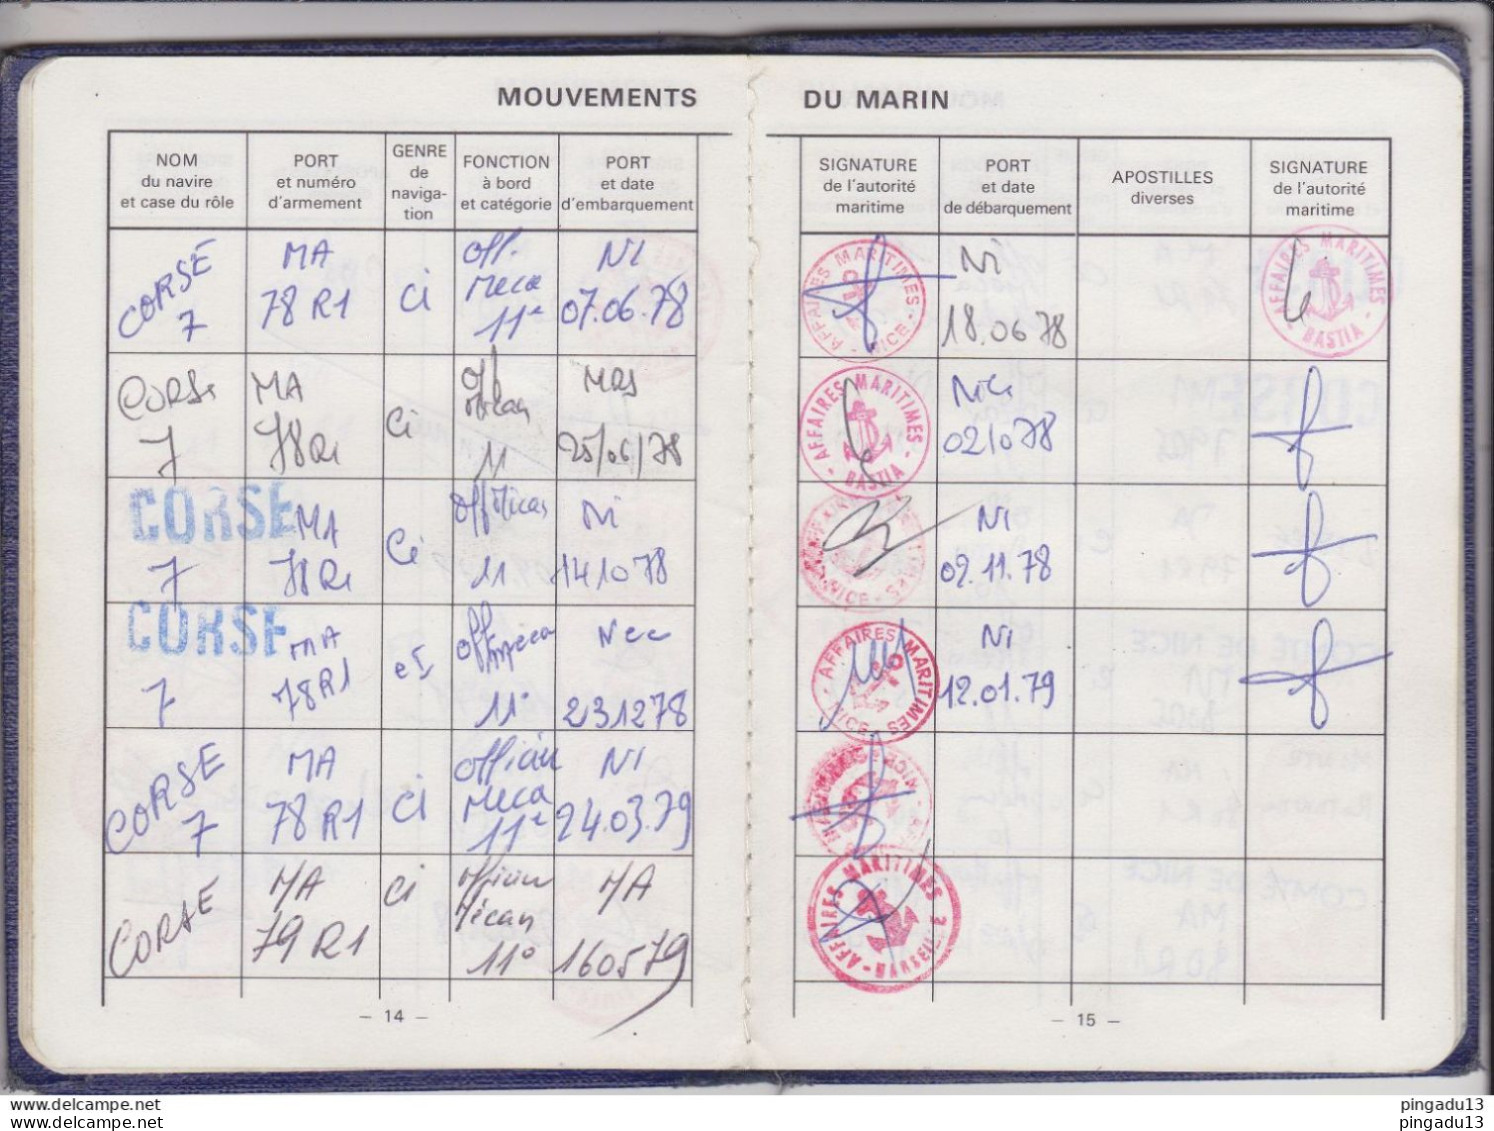 MOUVEMENTS DU MARIN
NOM
du navire
et case du rôle
PORT
et numéro
d'armement
GENRE
de
naviga-
tion
FONCTION
à bord
et catégorie
PORT
et date
d'embarquement
SIGNATURE
de l'autorité
maritime
PORT
et date
de débarquement
APOSTILLES
diverses
SIGNATURE
de l'autorité
maritime
CORSE
7
MA
78 R1
Ci
Off.
Meca
11e
NI
07.06.78
AFFAIRES MARITIMES
- NICE -
Ni
18.06 78
AFFAIRES MARITIMES
- BASTIA -
CORSE
7
MA
78R1
Ci
Off
Mécan
11
MRS
25/06/78
AFFAIRES MARITIMES
- BASTIA -
Nice
021078
CORSE
7
MA
78R1
Ci
11
Ni
141078
NICE
Ni
02.11.78
CORSE
7
MA
78R1
Off
meca
11°
231278
AFFAIRES MARITIMES
- NICE -
Ni
12.01.79
CORSE
7
MA
78 R1
Ci
Officier
Meca
11e
NI
24.03.79
CORSE
MA
79 R1
Ci
Officier
Mécan
11°
MA
160579
AFFAIRES MARITIMES
- 14 -
- 15 -
www.delcampe.net
www.delcampe.net
pingadu13
pingadu13